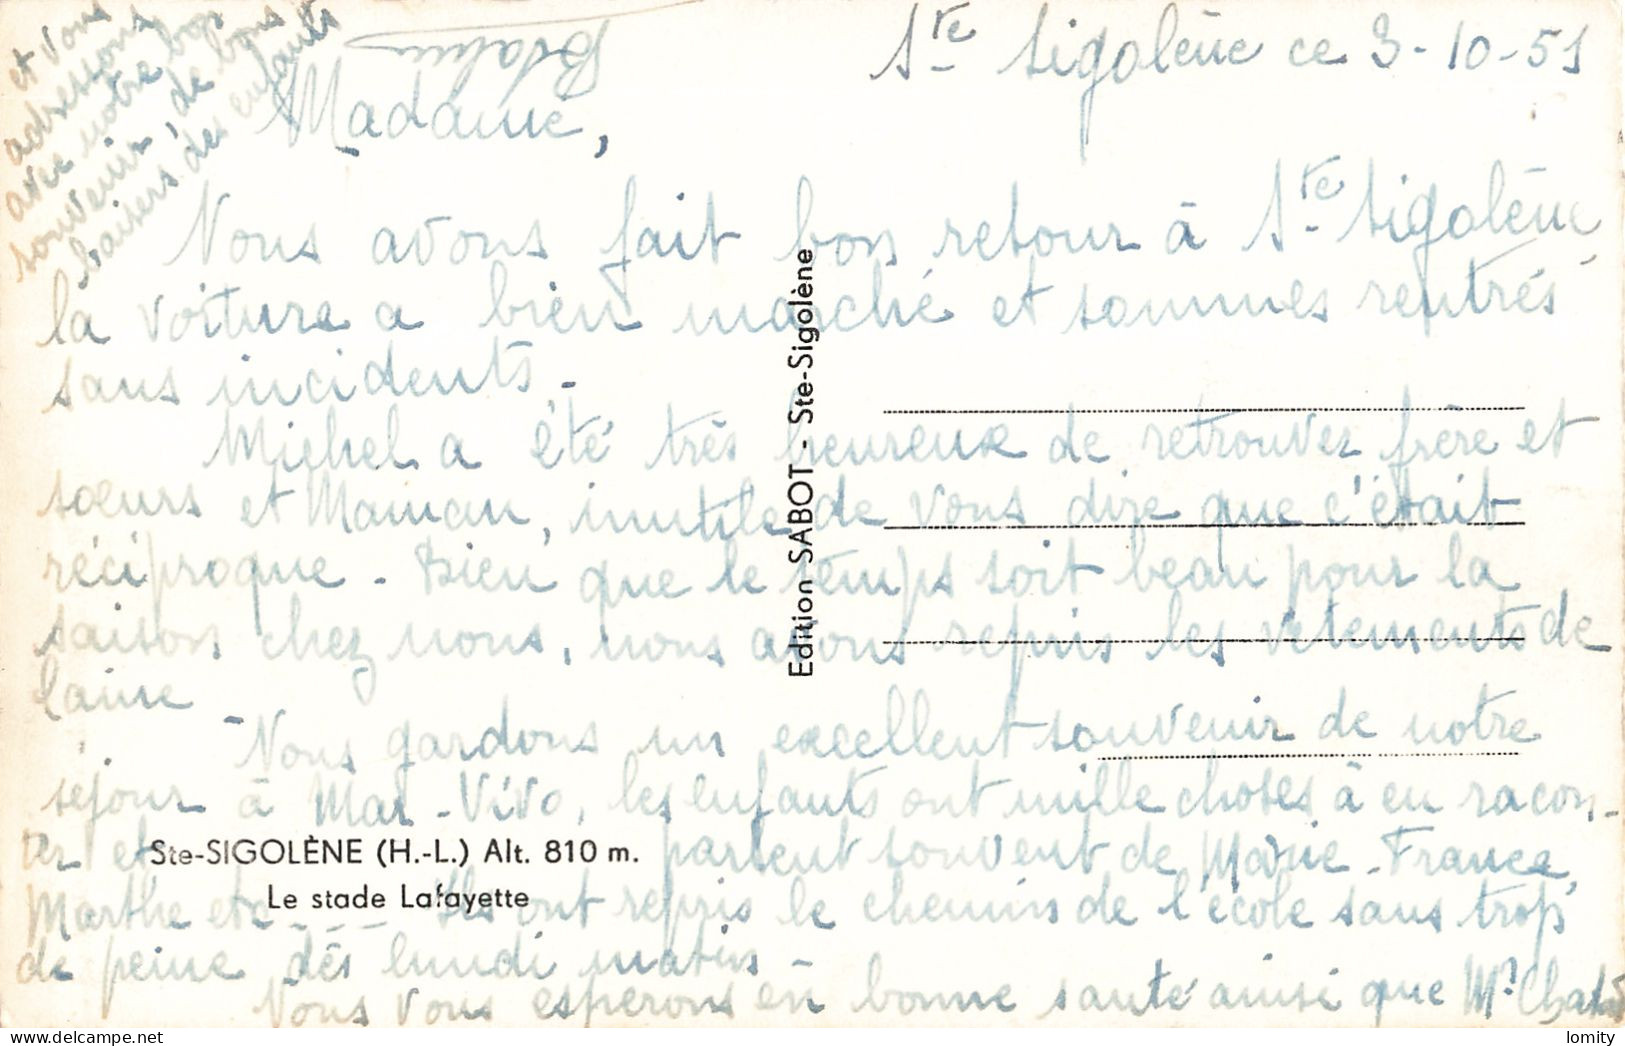 Ste Sigolène ce 3-10-51
Madame,
Nous avons fait bon retour à Ste Sigolène
la voiture a bien marché et sommes rentrés
sans incidents.
Michel a été très heureux de retrouver frère et
sœurs et Maman, inutile de vous dire que c'était
réciproque - Bien que le temps soit beau pour la
saison chez nous, nous avons repris les vêtements de
laine
- Nous gardons un excellent souvenir de notre
séjour à Mar-Vivo, les enfants ont mille choses à en racon-
ter et parlent souvent de Marie-France,
Marthe etc - Ils ont repris le chemin de l'école sans trop
de peine dès lundi matin -
Nous vous espérons en bonne santé ainsi que Mr
et vous
adressons
avec notre bon
souvenir, de bons
baisers des enfants
Edition SABOT - Ste-Sigolène
Ste-SIGOLÈNE (H.-L.) Alt. 810 m.
Le stade Lafayette
lomity
delcampe.net